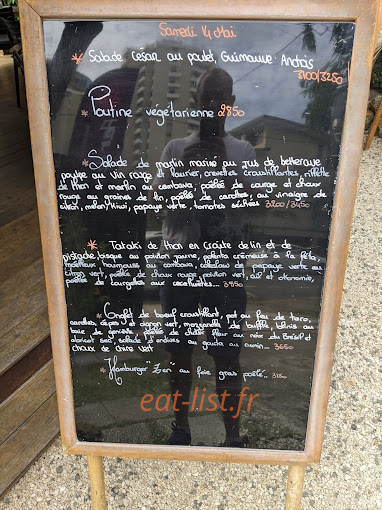 Samedi 14 Mai
* Salade César au poulet, Guimauve Anchois
3100/3250
* Poutine végétarienne 2850
* Salade de martin mariné au jus de betterave
poulpe au vin rouge et laurier, crevettes croustillantes, rillette
de thon et martin au combava, poêlée de courge et choux
rouge aux graines de lin, poêlée de carottes, au vinaigre de
citron, melon, kiwi, papaye verte, tomates séchées 3200/3450
* Tataki de thon en croûte de lin et de
pistache, bisque au poivron jaune, polenta crémeuse à la féta,
moelleux houmous au combava, coleslaw de papaye verte au
citron vert, poêlée de choux rouge poivron vert, ail et
poêlée de courgettes aux cacahuètes... 3850
Onglet de boeuf croustillant, pot au feu de taro,
carottes, cèpes et oignon vert, mozzarella de buffle, blinis au
baie de genièvre, poêlée de choux fleur au noix du Brésil et
abricot sec, salade d'endives au gouda au cumin... 3650
choux de chine vert
* Hamburger "Zen" au foie gras poêlé..
eat-list.fr